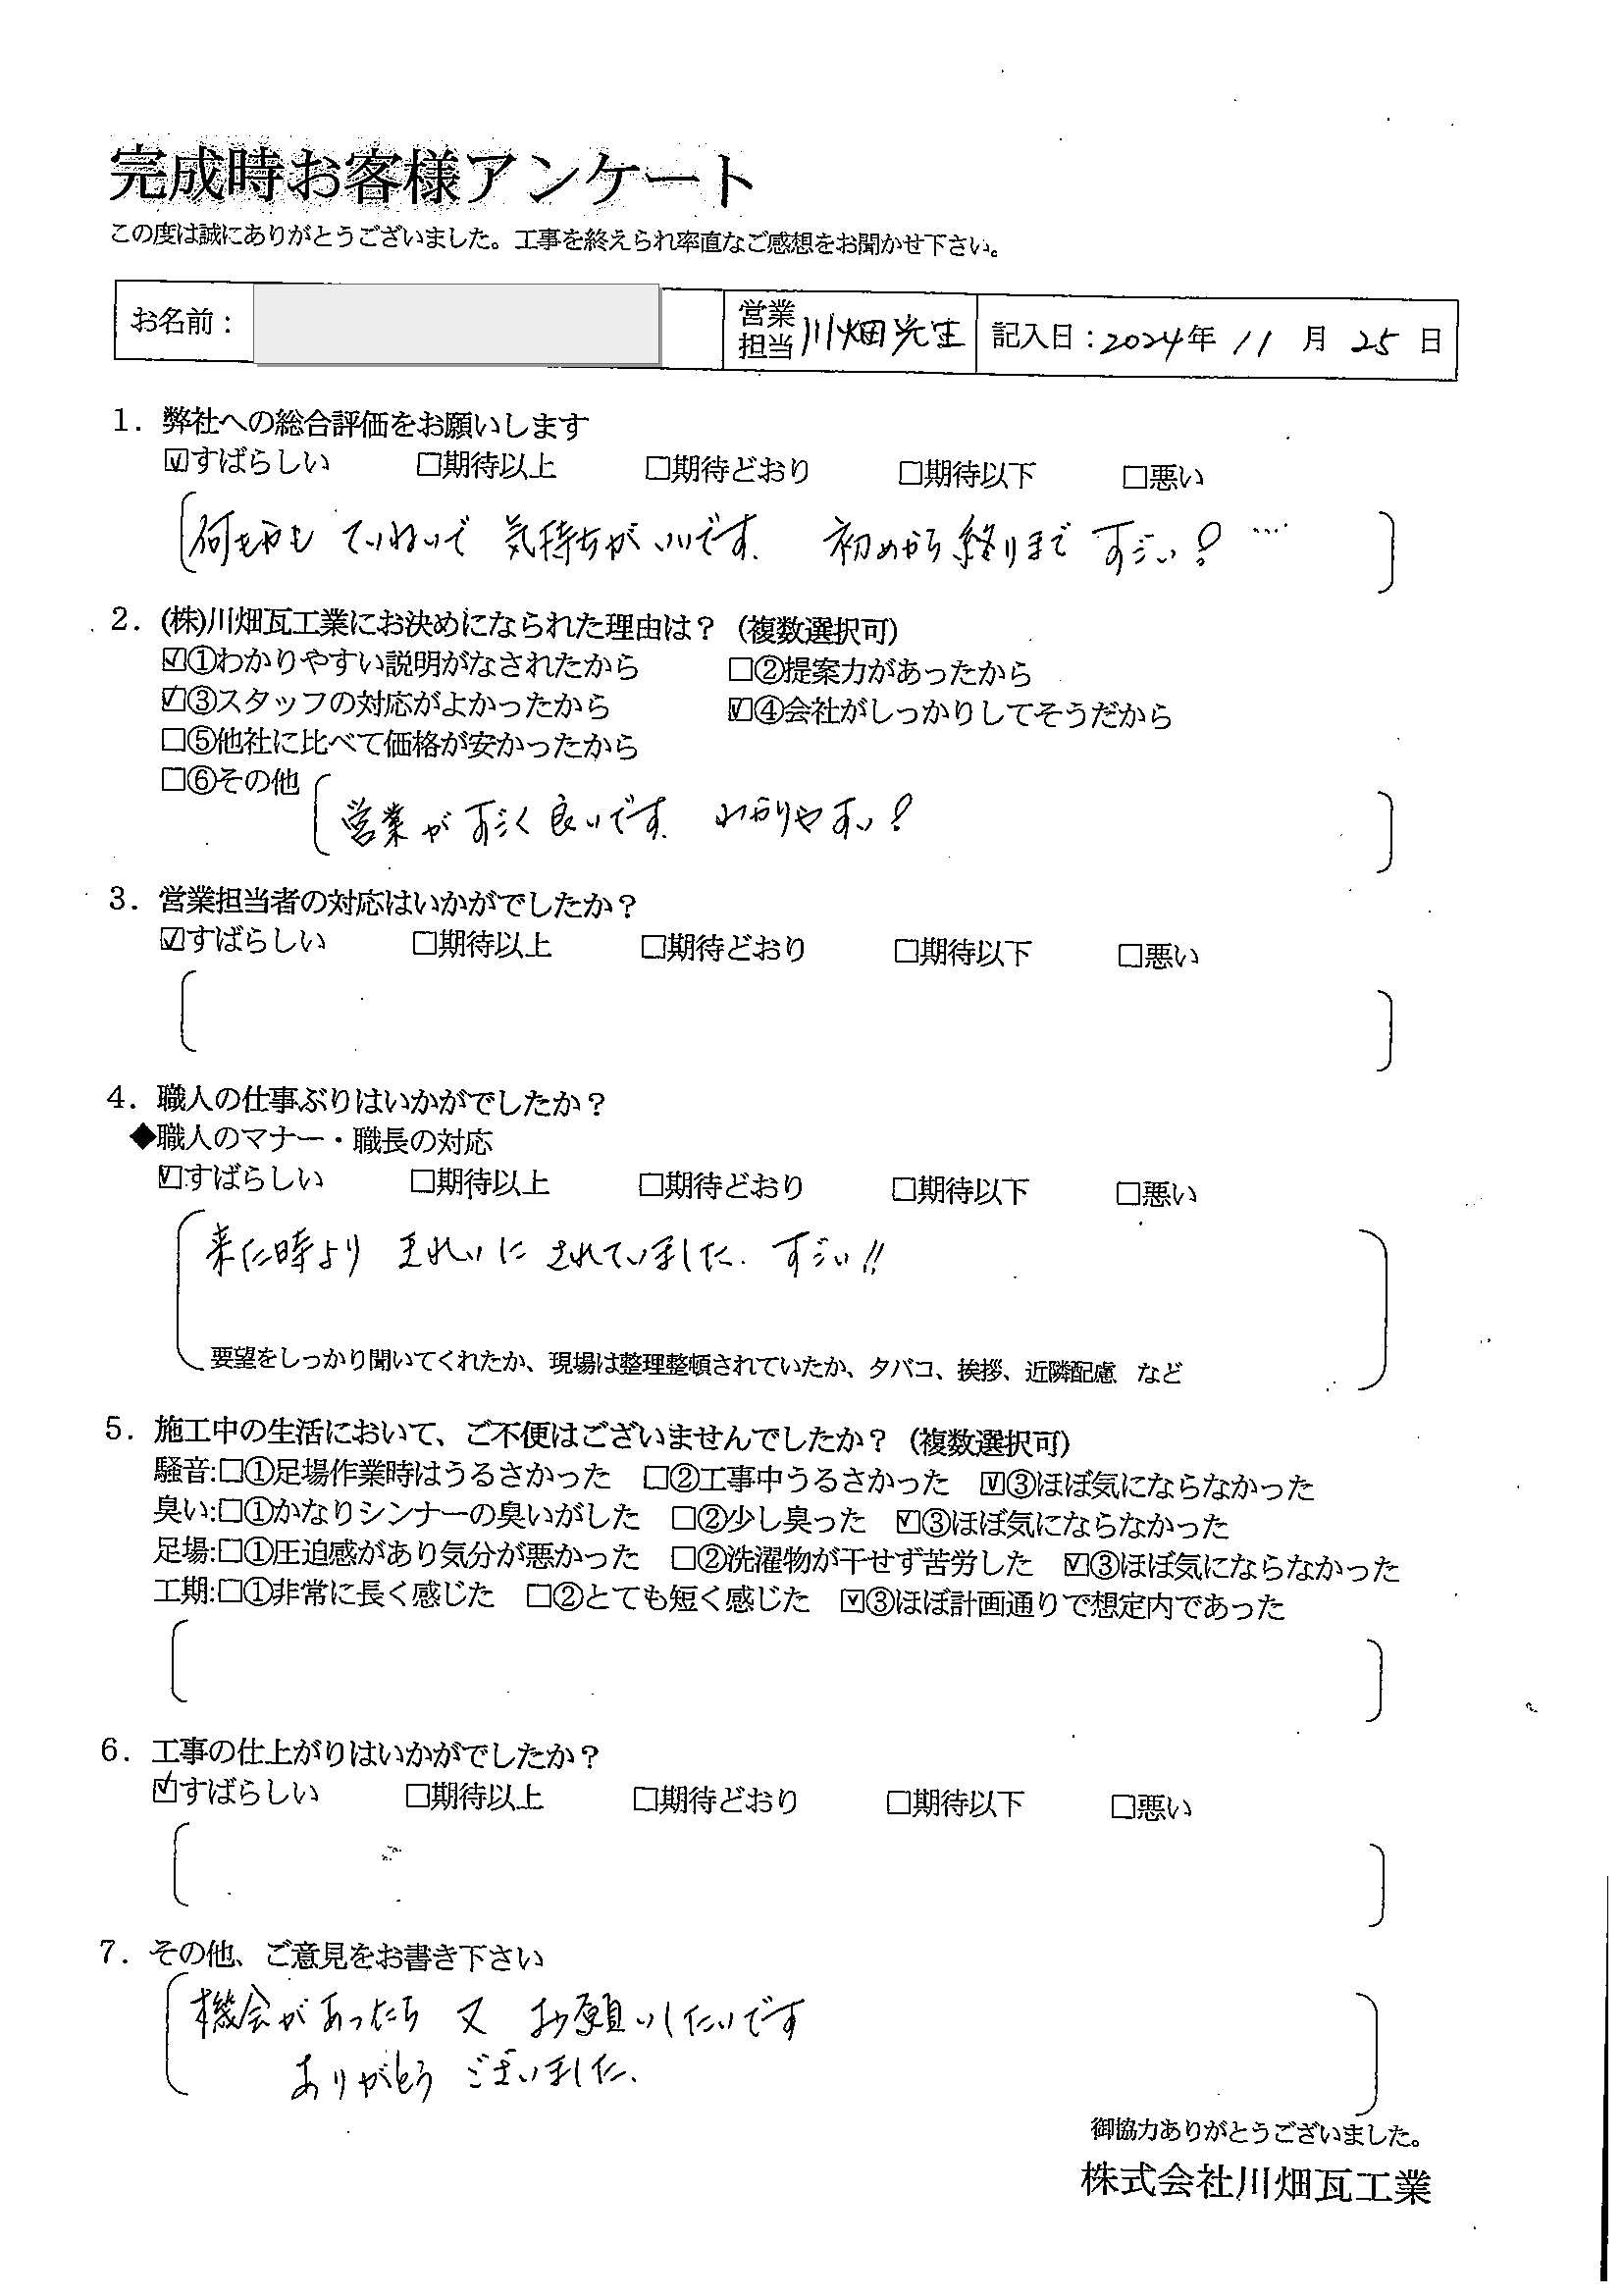 完成時お客様アンケート
この度は誠にありがとうございました。工事を終えられ率直なご感想をお聞かせ下さい。
お名前： 営業担当 川畑光生 記入日：2024年 11 月 25 日
1．弊社への総合評価をお願いします
☑すばらしい □期待以上 □期待どおり □期待以下 □悪い
何もかも ていねいで 気持ちがいいです. 初めから終りまで すごい！…
2．(株)川畑瓦工業にお決めになられた理由は？（複数選択可）
☑①わかりやすい説明がなされたから □②提案力があったから
☑③スタッフの対応がよかったから ☑④会社がしっかりしてそうだから
□⑤他社に比べて価格が安かったから
□⑥その他
営業がすごく良いです. わかりやすい！
3．営業担当者の対応はいかがでしたか？
☑すばらしい □期待以上 □期待どおり □期待以下 □悪い
4．職人の仕事ぶりはいかがでしたか？
◆職人のマナー・職長の対応
☑すばらしい □期待以上 □期待どおり □期待以下 □悪い
来た時より きれいに されていました. すごい!!
要望をしっかり聞いてくれたか、現場は整理整頓されていたか、タバコ、挨拶、近隣配慮 など
5．施工中の生活において、ご不便はございませんでしたか？（複数選択可）
騒音:□①足場作業時はうるさかった □②工事中うるさかった ☑③ほぼ気にならなかった
臭い:□①かなりシンナーの臭いがした □②少し臭った ☑③ほぼ気にならなかった
足場:□①圧迫感があり気分が悪かった □②洗濯物が干せず苦労した ☑③ほぼ気にならなかった
工期:□①非常に長く感じた □②とても短く感じた ☑③ほぼ計画通りで想定内であった
6．工事の仕上がりはいかがでしたか？
☑すばらしい □期待以上 □期待どおり □期待以下 □悪い
7．その他、ご意見をお書き下さい
機会があったら 又 お願いしたいです
ありがとう ございました.
御協力ありがとうございました。
株式会社川畑瓦工業